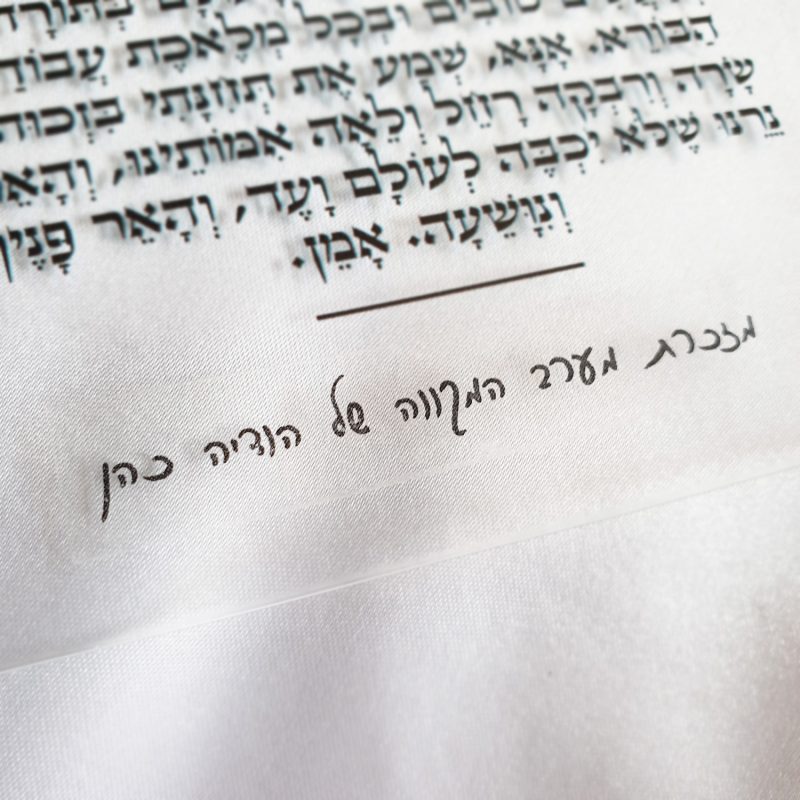 טובים ובכל מלאכת
הַבּוֹרֵא. אָנָּא, שְׁמַע אֶת תְּחִנָּתִי בִּזְכוּת
שָׂרָה וְרִבְקָה רָחֵל וְלֵאָה אִמּוֹתֵינוּ, וְהָאֵר
נֵרֵנוּ שֶׁלֹּא יִכְבֶּה לְעוֹלָם וָעֶד, וְהָאֵר פָּנֶיךָ
וְנִוָּשֵׁעָה. אָמֵן.
מזכרת מערב המקווה של הודיה כהן